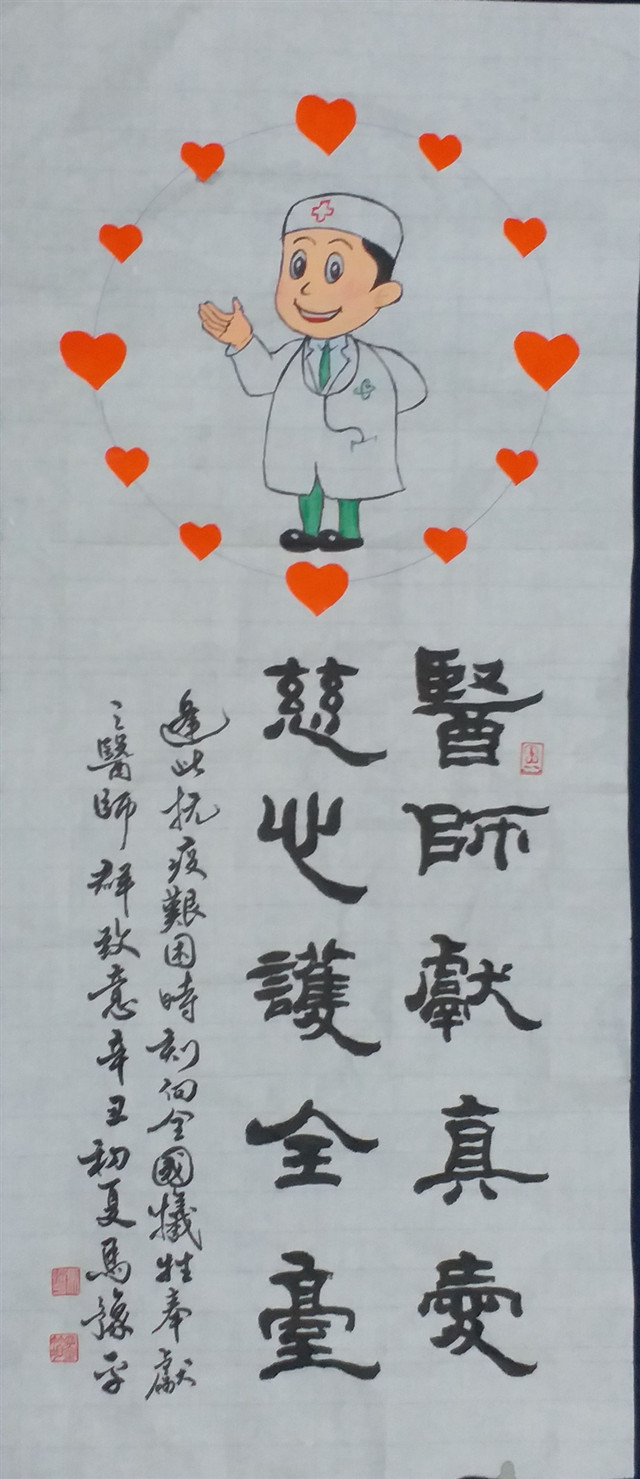 醫師獻真愛
慈心護全臺
逢此抗疫艱困時刻向全國犧牲奉獻
之醫師群致意辛丑初夏馬豫平